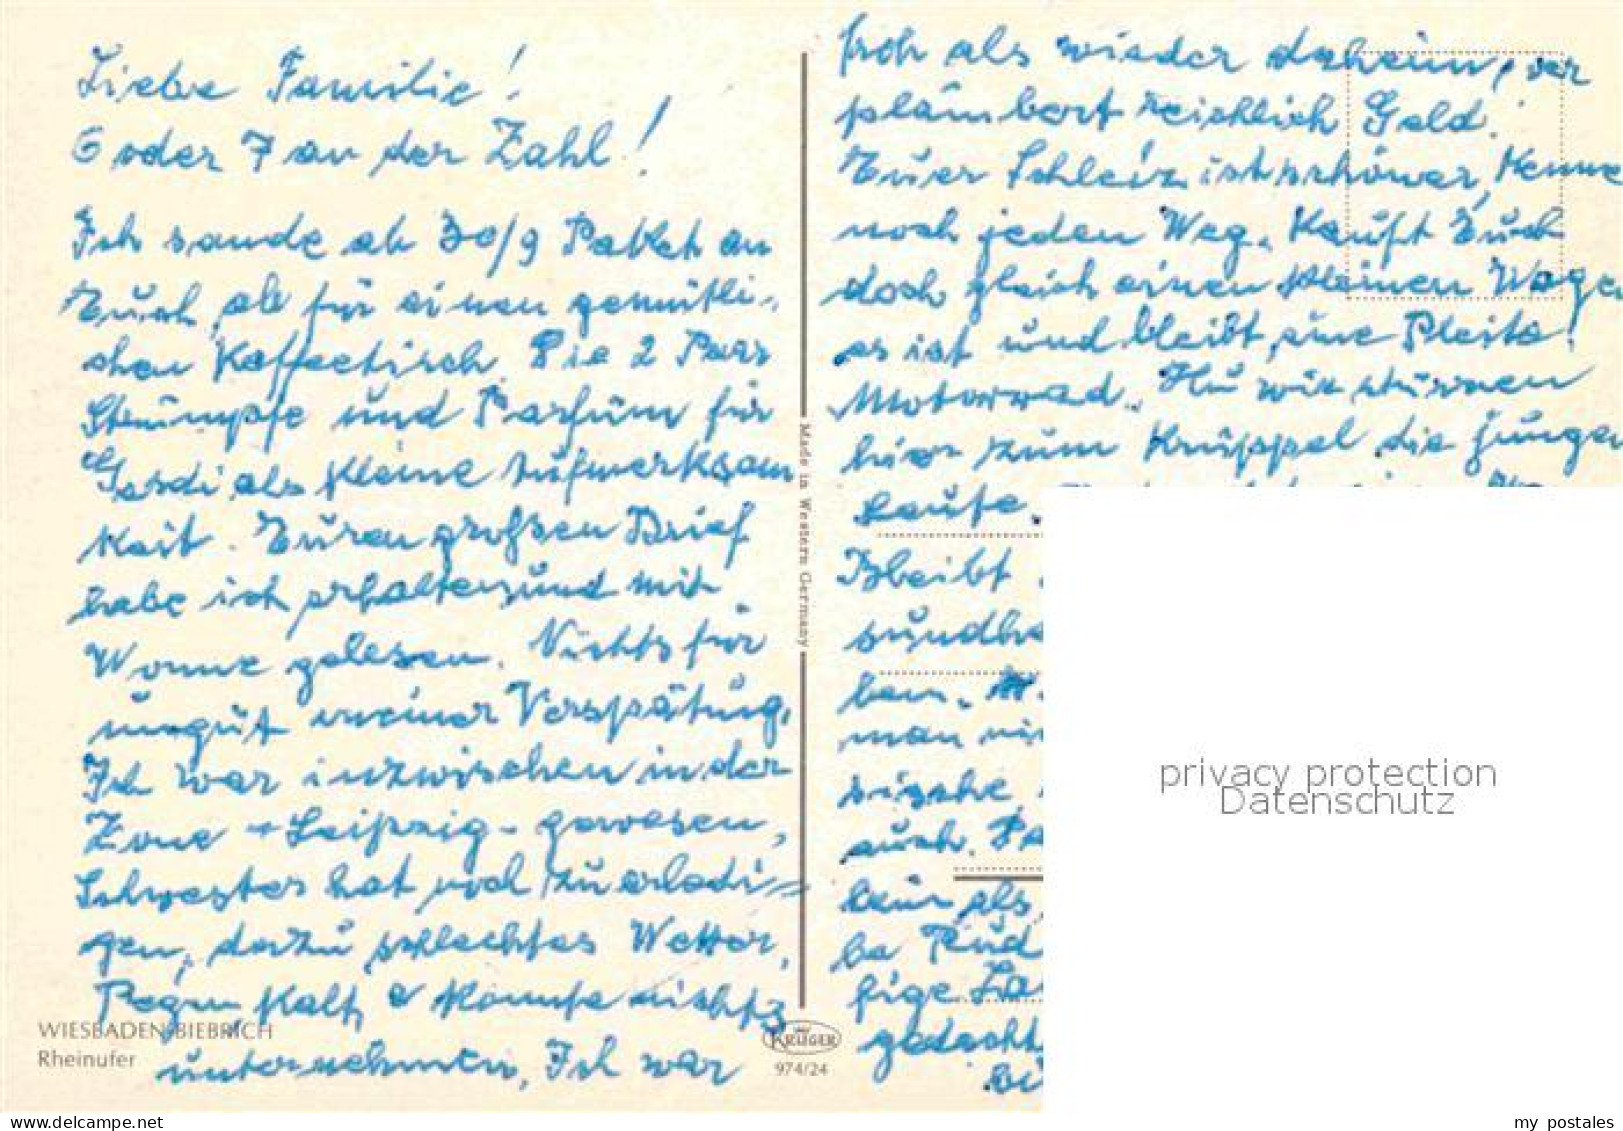 Liebe Familie!
6 oder 7 an der Zahl!
Ich sende ab 30/9 Paket an
Euch, ab für einen gemütli-
chen Kaffeetisch. Die 2 Paar
Strümpfe und Parfüm für
Gerdi, als kleine Aufmerksam
keit. Euren großen Brief
habe ich erhalten und mit
Wonne gelesen. Nichts für
ungut meiner Verspätung,
Ich war inzwischen in der
Zone - Leipzig - gewesen,
Schwester hat noch zu erledi=
gen, dazu schlechtes Wetter,
Regen, kalt, konnte nichts
unternehmen, Ich war
froh als wieder daheim, ver
plämbert reichlich Geld.
Euer Schleiz ist schöner, Kenne
noch jeden Weg. Kauft Euch
doch gleich einen kleinen Wage
es ist und bleibt, eine Pleite!
Motorrad. Hu wir stürzen
hier zum Krüppel die jungen
Leute.
Bleibt
sundhe
ben.
man
auch.
kein als
be Rud
fige La
gedacht
WIESBADEN-BIEBRICH
Rheinufer
Made in Western Germany
KRÜGER
974/24
privacy protection
Datenschutz
delcampe.net
my_postales